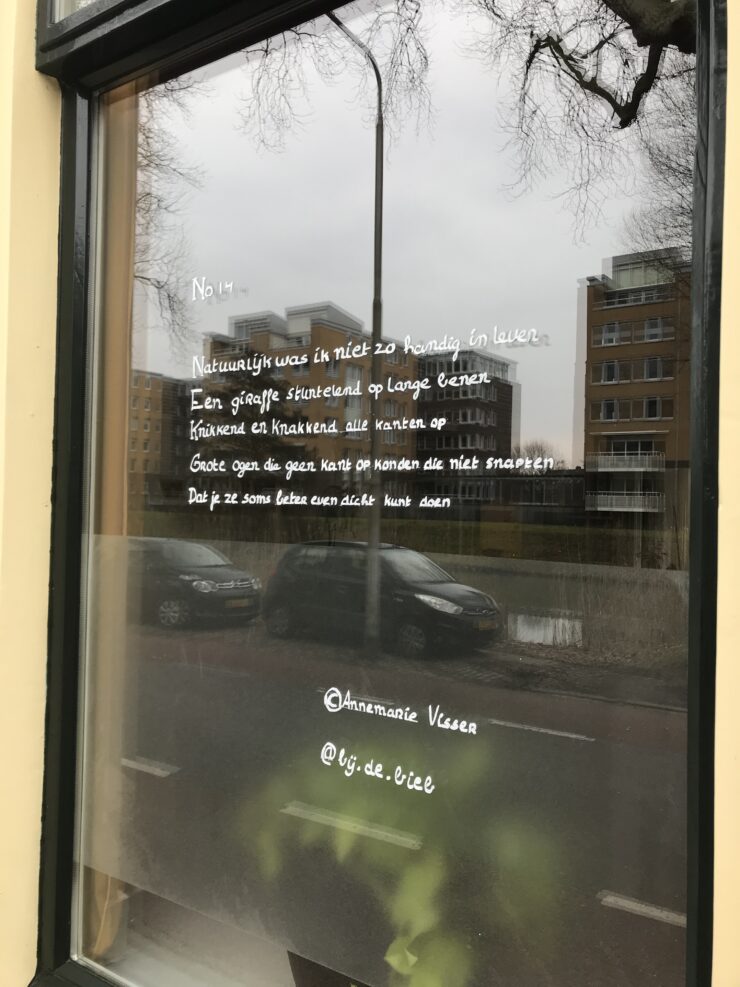 No 14
Natuurlijk was ik niet zo handig in leven
Een giraffe stuntelend op lange benen
Knikkend en knakkend alle kanten op
Grote ogen die geen kant op konden die niet snapten
Dat je ze soms beter even dicht kunt doen
©Annemarie Visser
@bij.de.bieb